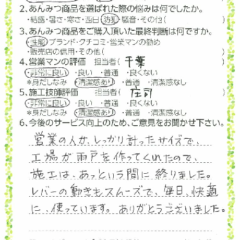 2.あんみつ商品を選ばれた際の悩みは何でしたか。
・結露・暑さ・寒さ・西日・防犯・騒音・その他( )
3.あんみつ商品をご購入頂いた最終判断は何ですか。
・性能・ブランド・クチコミ・営業マンの勧め
・販売店の信用・その他( )
4.営業マンの評価 担当者( 千葉 )
・非常に良い ・良い ・普通 ・良くない
※身だしなみ( 清潔感あり ・普通 ・清潔感なし )
5.施工技術評価 担当者( 庄司 )
・非常に良い ・良い ・普通 ・良くない
※身だしなみ( 清潔感あり ・普通 ・清潔感なし )
6.今後のサービス向上のため、ご意見をお聞かせ下さい。
営業の人が、しっかり計ったサイズで、
工場が雨戸を作ってくれたので、
施工は、あっという間に終りました。
レバーの動きもスムーズで、毎日、快適
に、使っています。ありがとうございました。